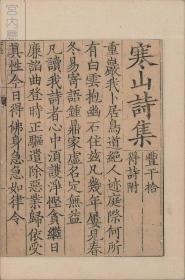 寒山詩集
豐干拾
得詩附
重巖我卜居鳥道絕人迹庭際何所
有白雲抱幽石住茲凡幾年屢見春
冬易寄語鍾鼎家虛名定無益
凡讀我詩者心中須護淨慳貪繼日
廉諂曲登時正驅遣除惡業歸依受
真性今日得佛身急急如律令